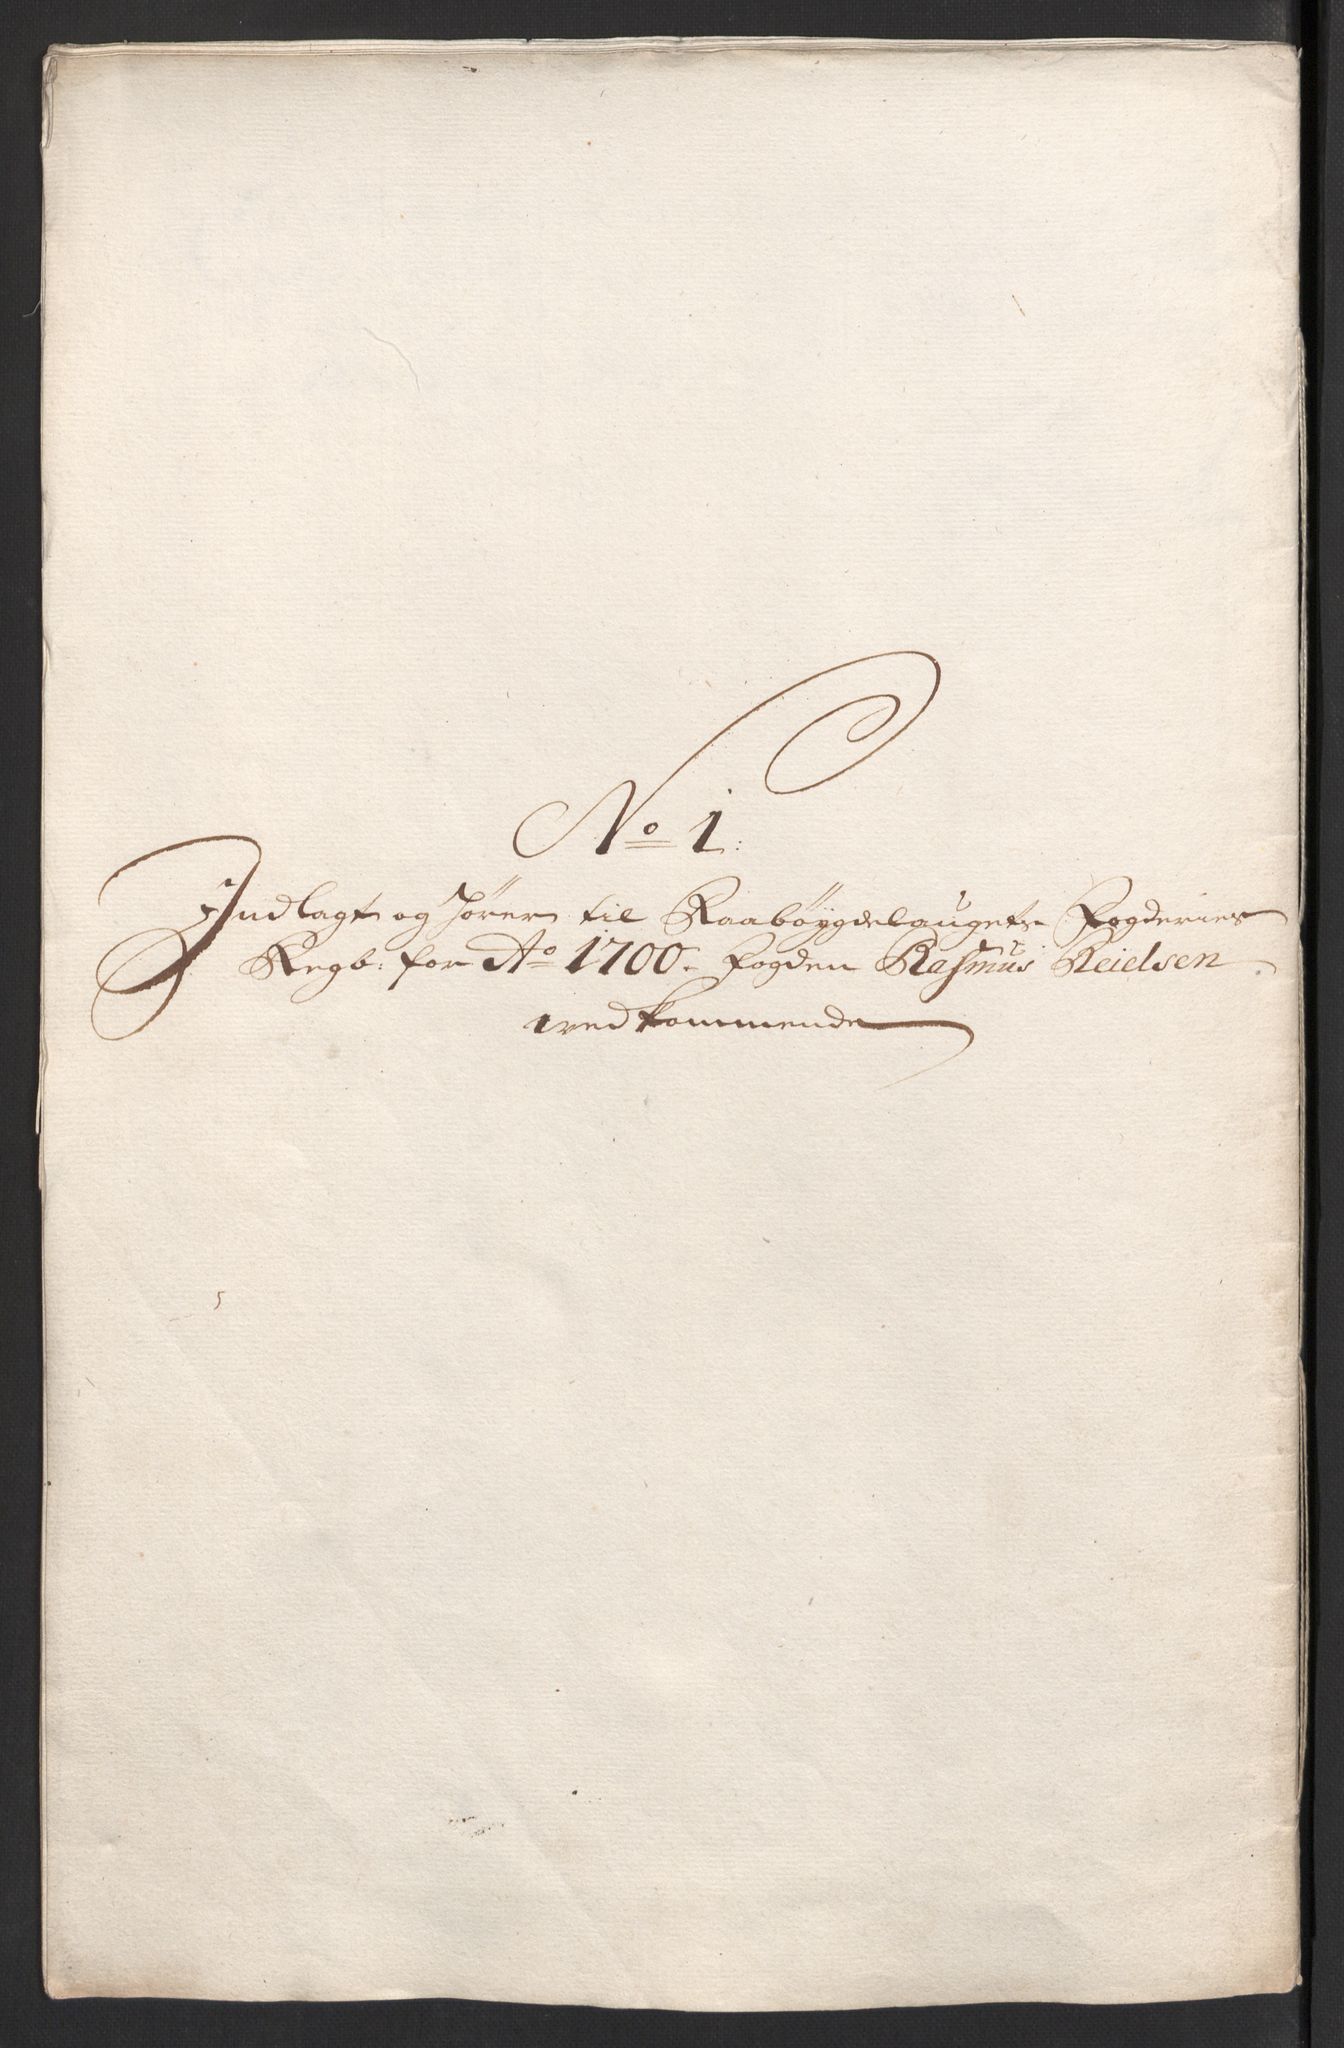 No 1:
Indlagt og hører til Raabøygdelaugets Fogderies
Regb: for Ao 1700. Fogden Rasmus Keielsen
vedkommende